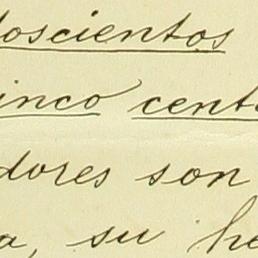 doscientos
cinco cent
dores son
a, su he